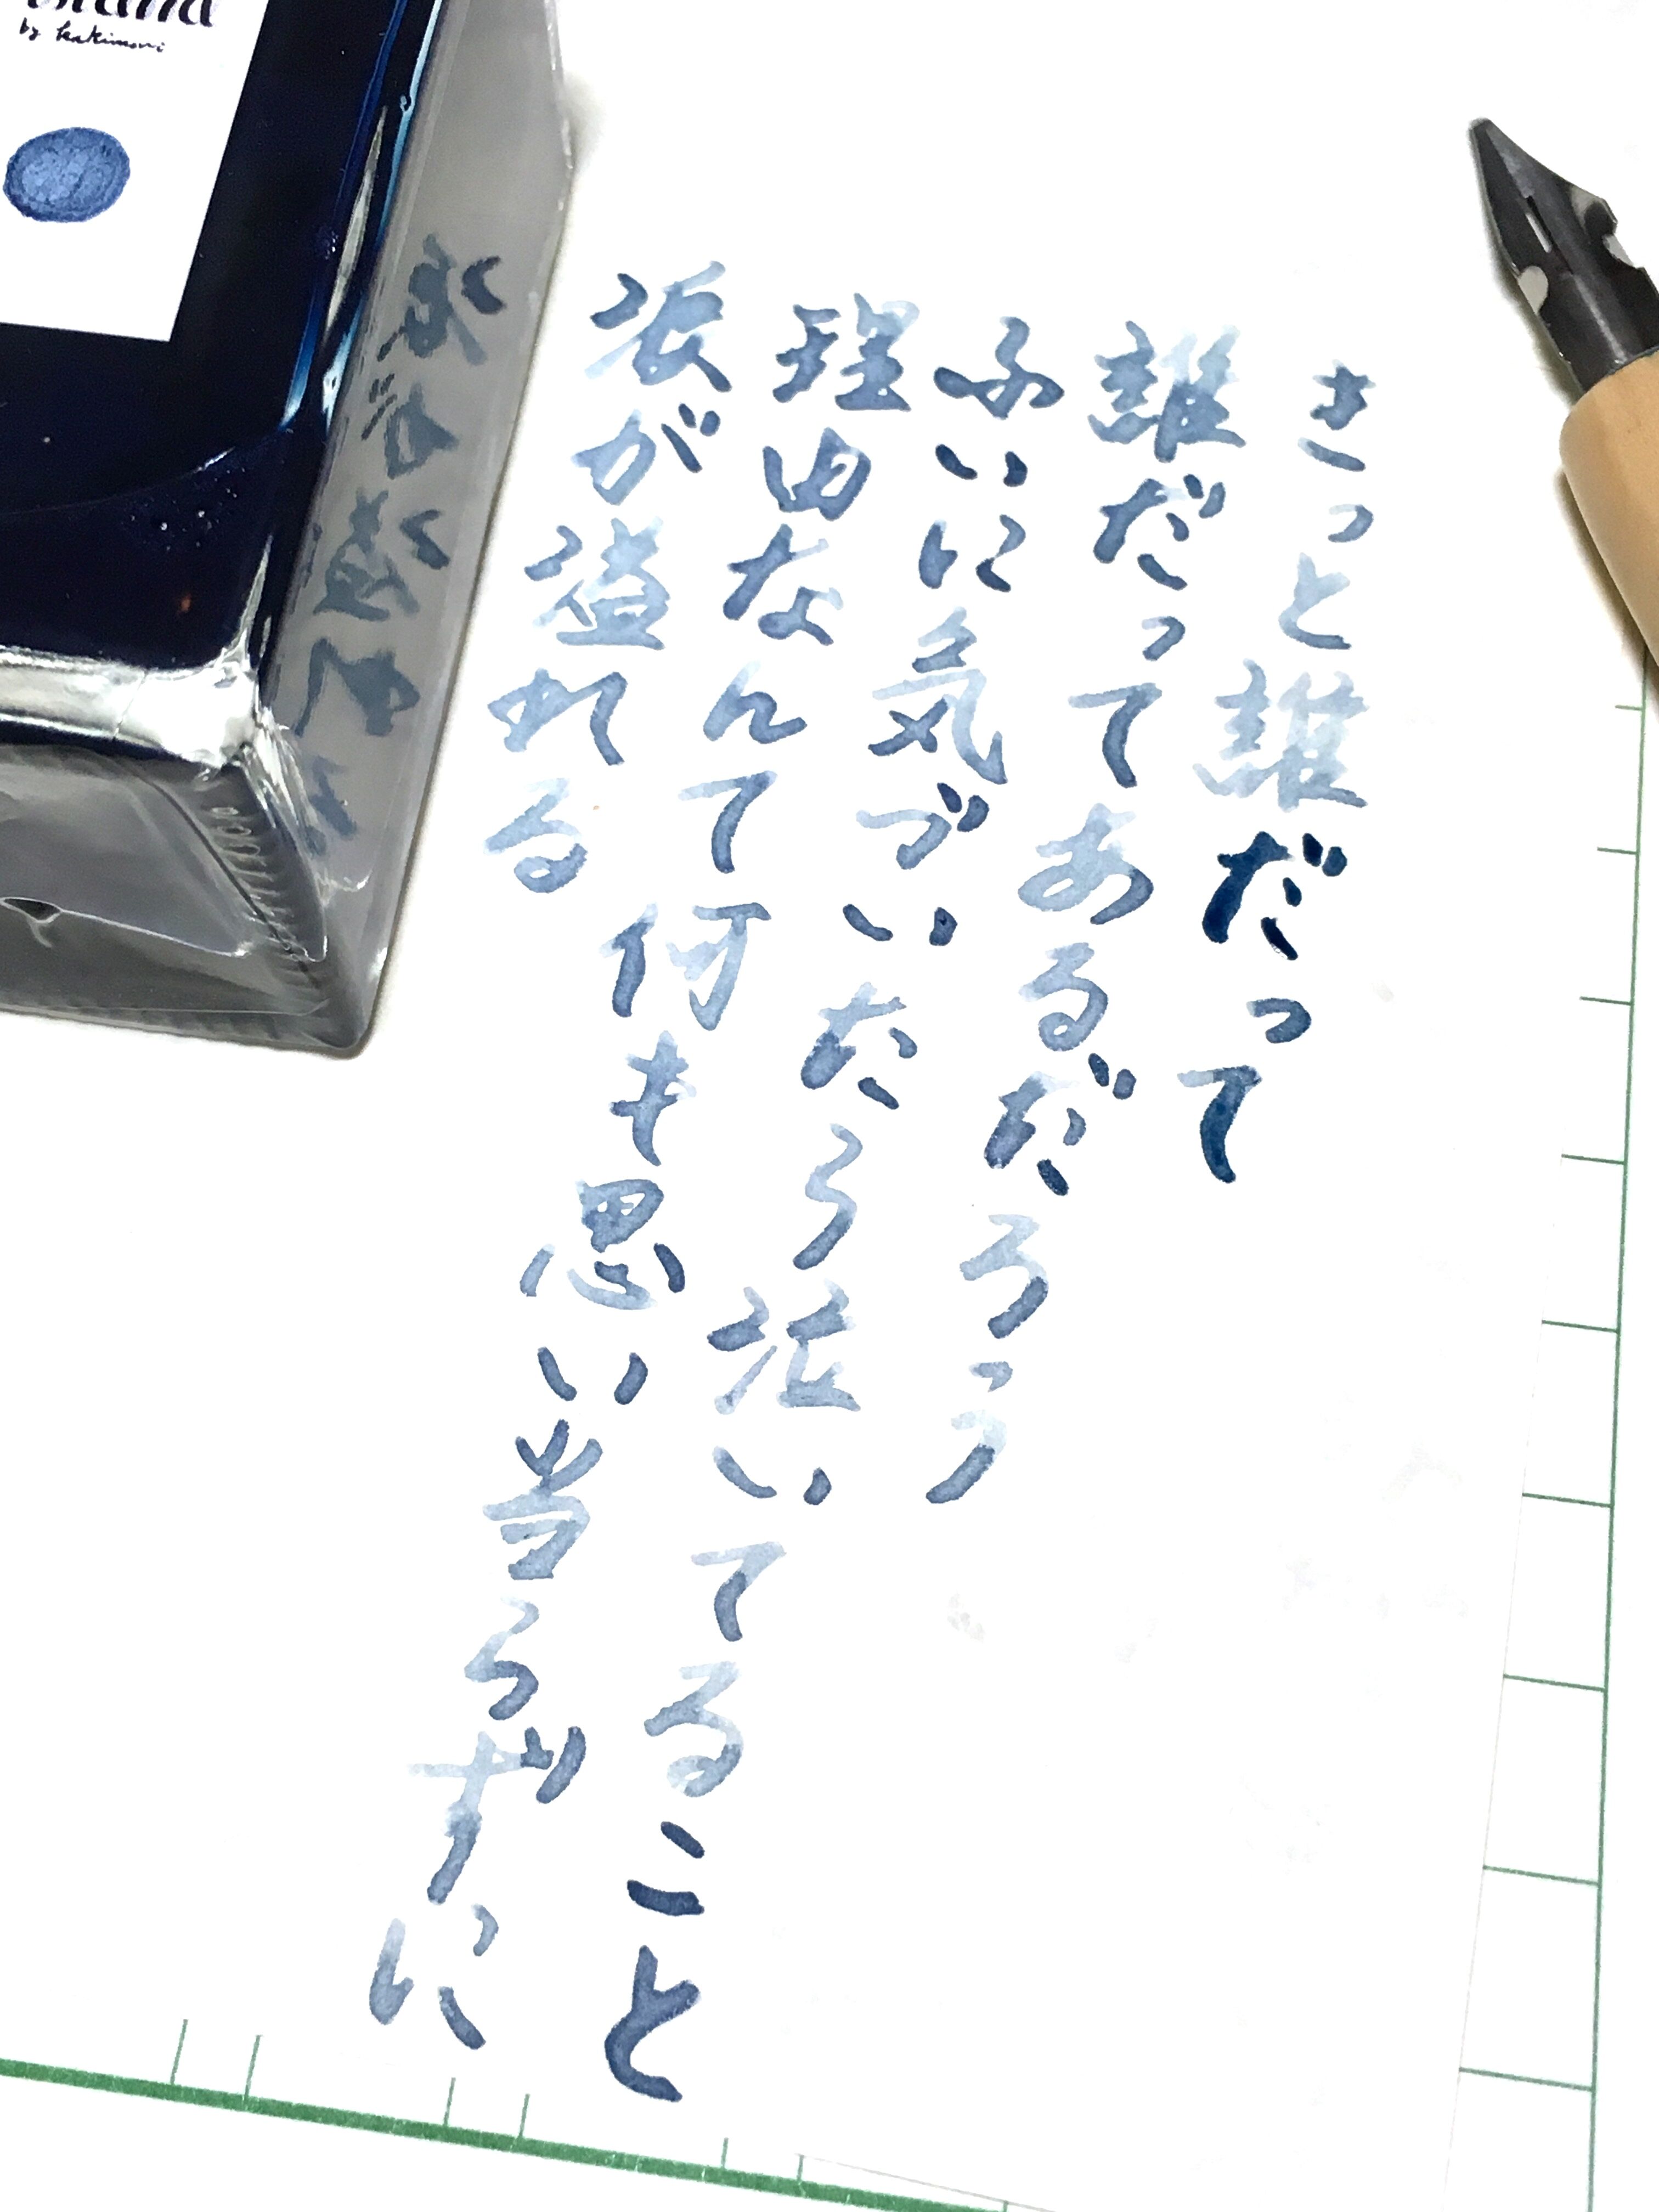 きっと誰だって
誰だってあるだろう
ふいに気づいたら泣いてること
理由なんて何も思い当らずに
涙が溢れる
by kakimori